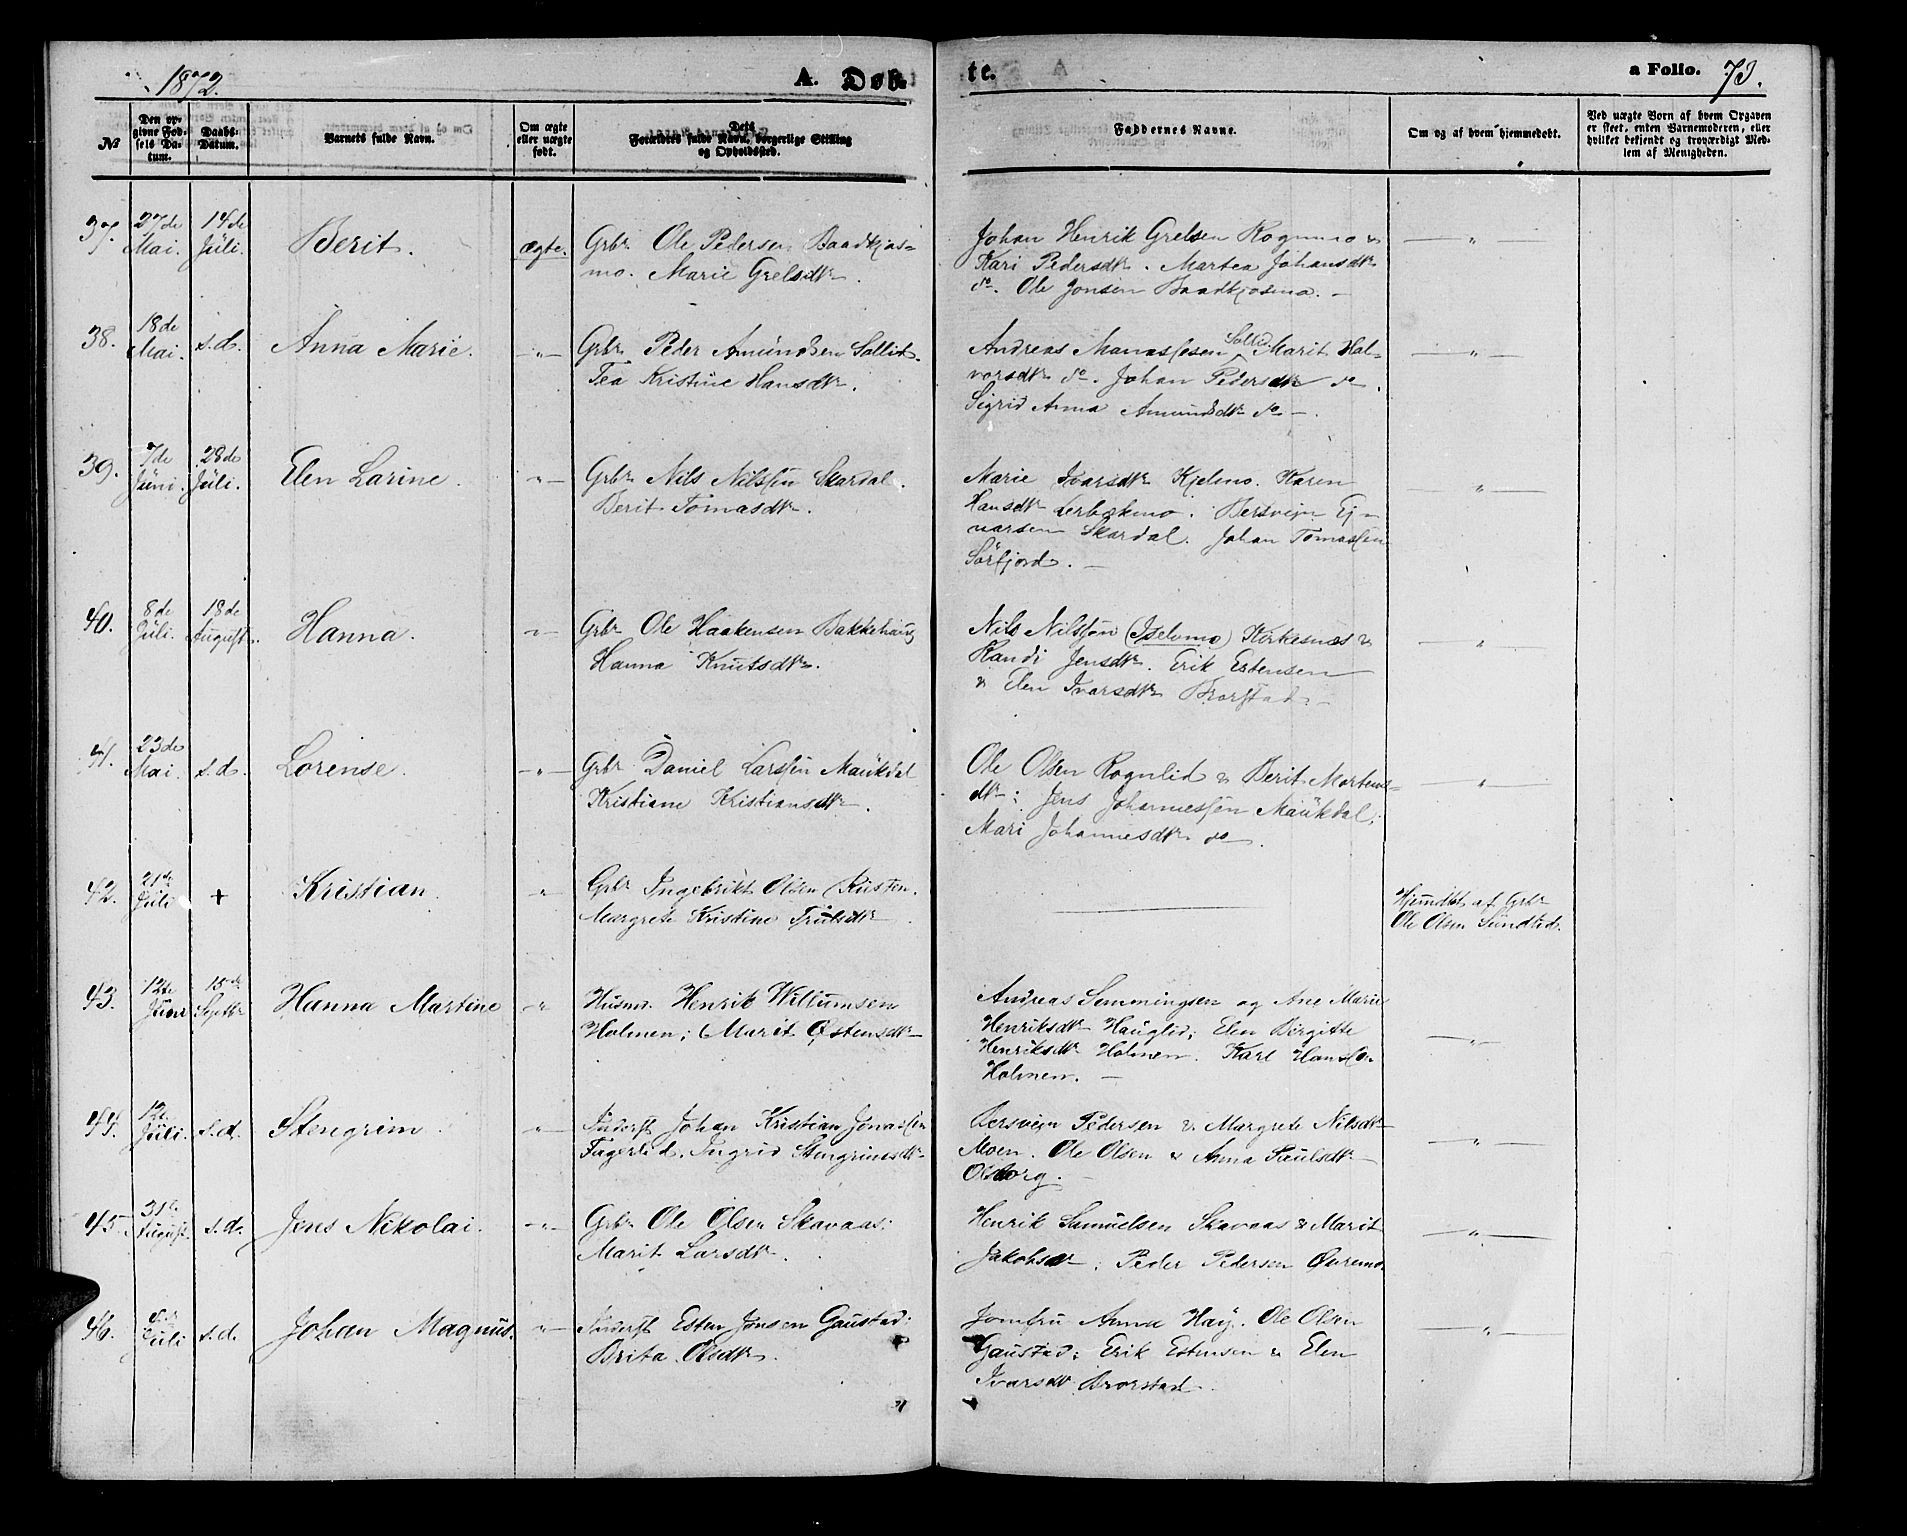 1872.
A. Døb-
te.
a Folio. 73.
№
Den op-
givne Fød-
sels Da-
tum.
Daabs-
Datum.
Barnets fulde Navn.
Om ægte
eller uægte
født.
Dets
Forældres fulde Navn, borgerlige Stilling
og Opholdssted.
Faddernes Navne.
Om og af hvem hjemmedøbt.
Ved uægte Børn af hvem Opgaven
er skeet, enten Barnemoderen, eller
hvilket bekjendt og troværdigt Med-
lem af Menigheden.
37. 27de Mai. 14de Juli. Berit. ægte. Grbr. Ole Pedersen Baadkjos-
mo. Marie Grelsdtr.
Johan Henrik Grelsen Rognmo &
Kari Pedersdtr. Martea Johansdtr
do. Ole Jonsen Baadkjosmo. —
38. 18de Mai. s.d. Anna Marie. — " — Grbr. Peder Amundsen Sollid.
Tea Kristine Hansdtr.
Andreas Manassesen Sollid Marit Hal-
vorsdtr do. Johan Pedersdtr do.
Sigrid Anna Amundsdtr do —
39. 7de Juni. 28de Juli. Elen Larine. " — Grbr Nils Nilssen Skardal.
Berit Tomasdtr.
Marie Ivarsdtr Kjelmo. Karen
Hansdtr Lerbækmo. Bersvejn Ej-
narsen Skardal. Johan Tomassen
Sørfjord. —
40. 8de Juli. 18de August. Hanna. " — Grbr Ole Haakensen Bakkehaug
Hanna Knutsdtr.
Nils Nilssen (Iselvmo) Kirkesnes &
Randi Jensdtr. Erik Estensen
& Elen Ivarsdtr Brorstad. —
41. 23de Mai. s.d. Lorense. — " — Grbr Daniel Larssen Maukdal
Kristiane Kristiansdtr.
Ole Olsen Rognlid & Berit Mortens-
dtr; Jens Johannessen Maukdal;
Mari Johannesdtr do
42. 21de Juli + Kristian. " Grbr Ingebrikt Olsen Rusten.
Margrete Kristine Trulsdtr.
Hjemdbt af Grbr
Ole Olsen Sundlid.
43. 12te Juni 15de Septbr Hanna Martine — " Husm. Henrik Willumsen
Holmen; Marit Østensdtr —
Andreas Semmingsen og Ane Marie
Henriksdtr Hauglid; Elen Birgitte
Henriksdtr Holmen. Karl Hanssen
Holmen. —
44. 12te Juli. s.d. Stengrim. " — Inderst Johan Kristian Jonassen
Fagerlid. Ingrid Stengrimsdtr —
Bersvejn Pedersen & Margrete Nilsdtr
Moen. Ole Olsen & Anna Paulsdtr
Olsborg. —
45. 31te August. s.d. Jens Nikolai. — " — Grbr Ole Olsen Skavaas:
Marit Larsdtr.
Henrik Samuelsen Skavaas & Marit
Jakobsdtr; Peder Pedersen Øvremo.
46. Juli s.d. Johan Magnus. " — Inderst Esten Jonsen Gaustad:
Brita Olsdtr.
Jomfru Anna Høy. Ole Olsen
Gaustad; Erik Estensen & Elen
Ivarsdtr Brorstad.